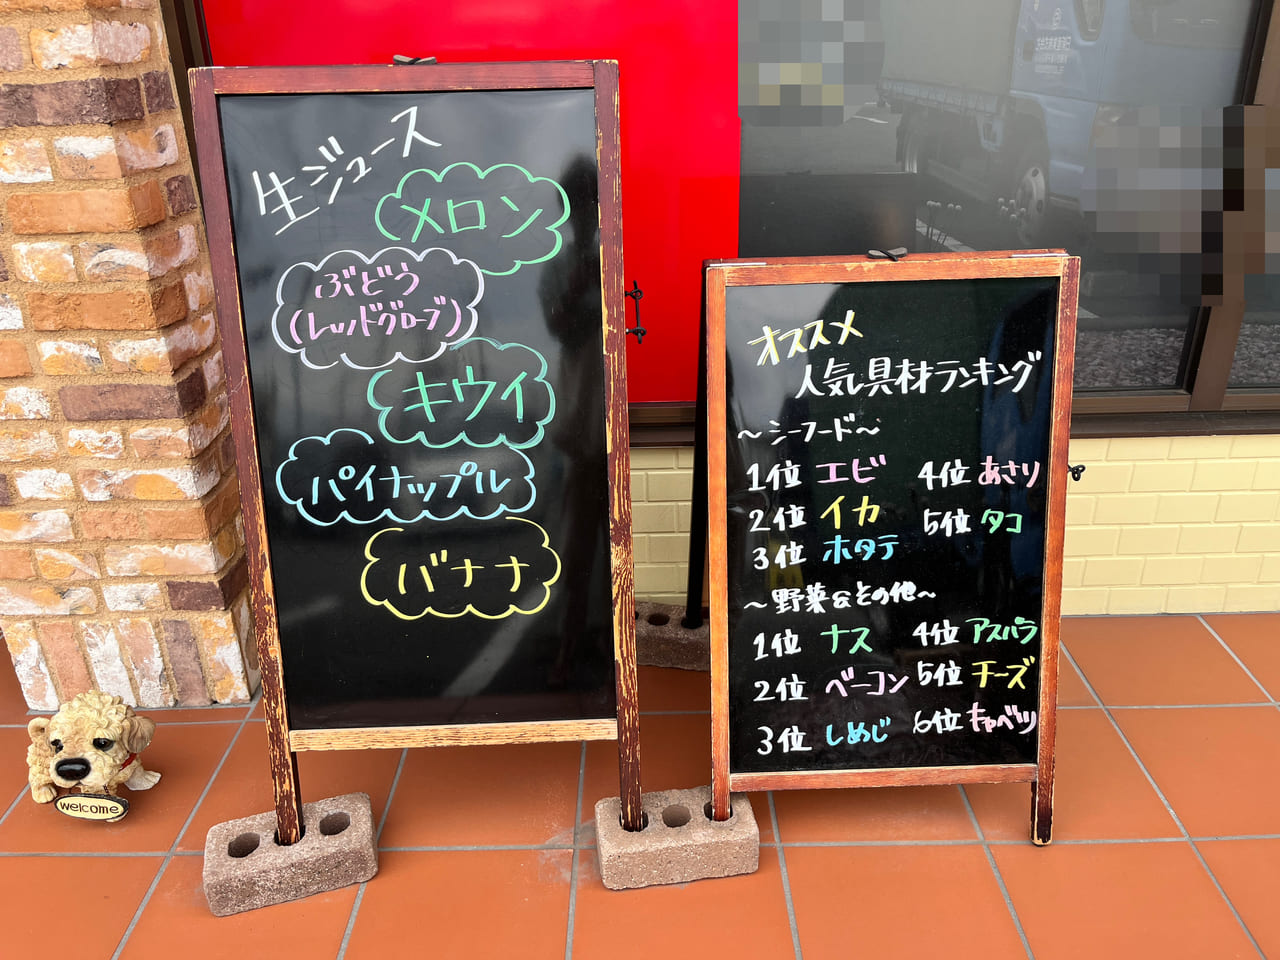 生ジュース
メロン
ぶどう
(レッドグローブ)
キウイ
パイナップル
バナナ
オススメ
人気具材ランキング
~シーフード~
1位 エビ
2位 イカ
3位 ホタテ
4位 あさり
5位 タコ
~野菜&その他~
1位 ナス
2位 ベーコン
3位 しめじ
4位 アスパラ
5位 チーズ
6位 キャベツ
welcome